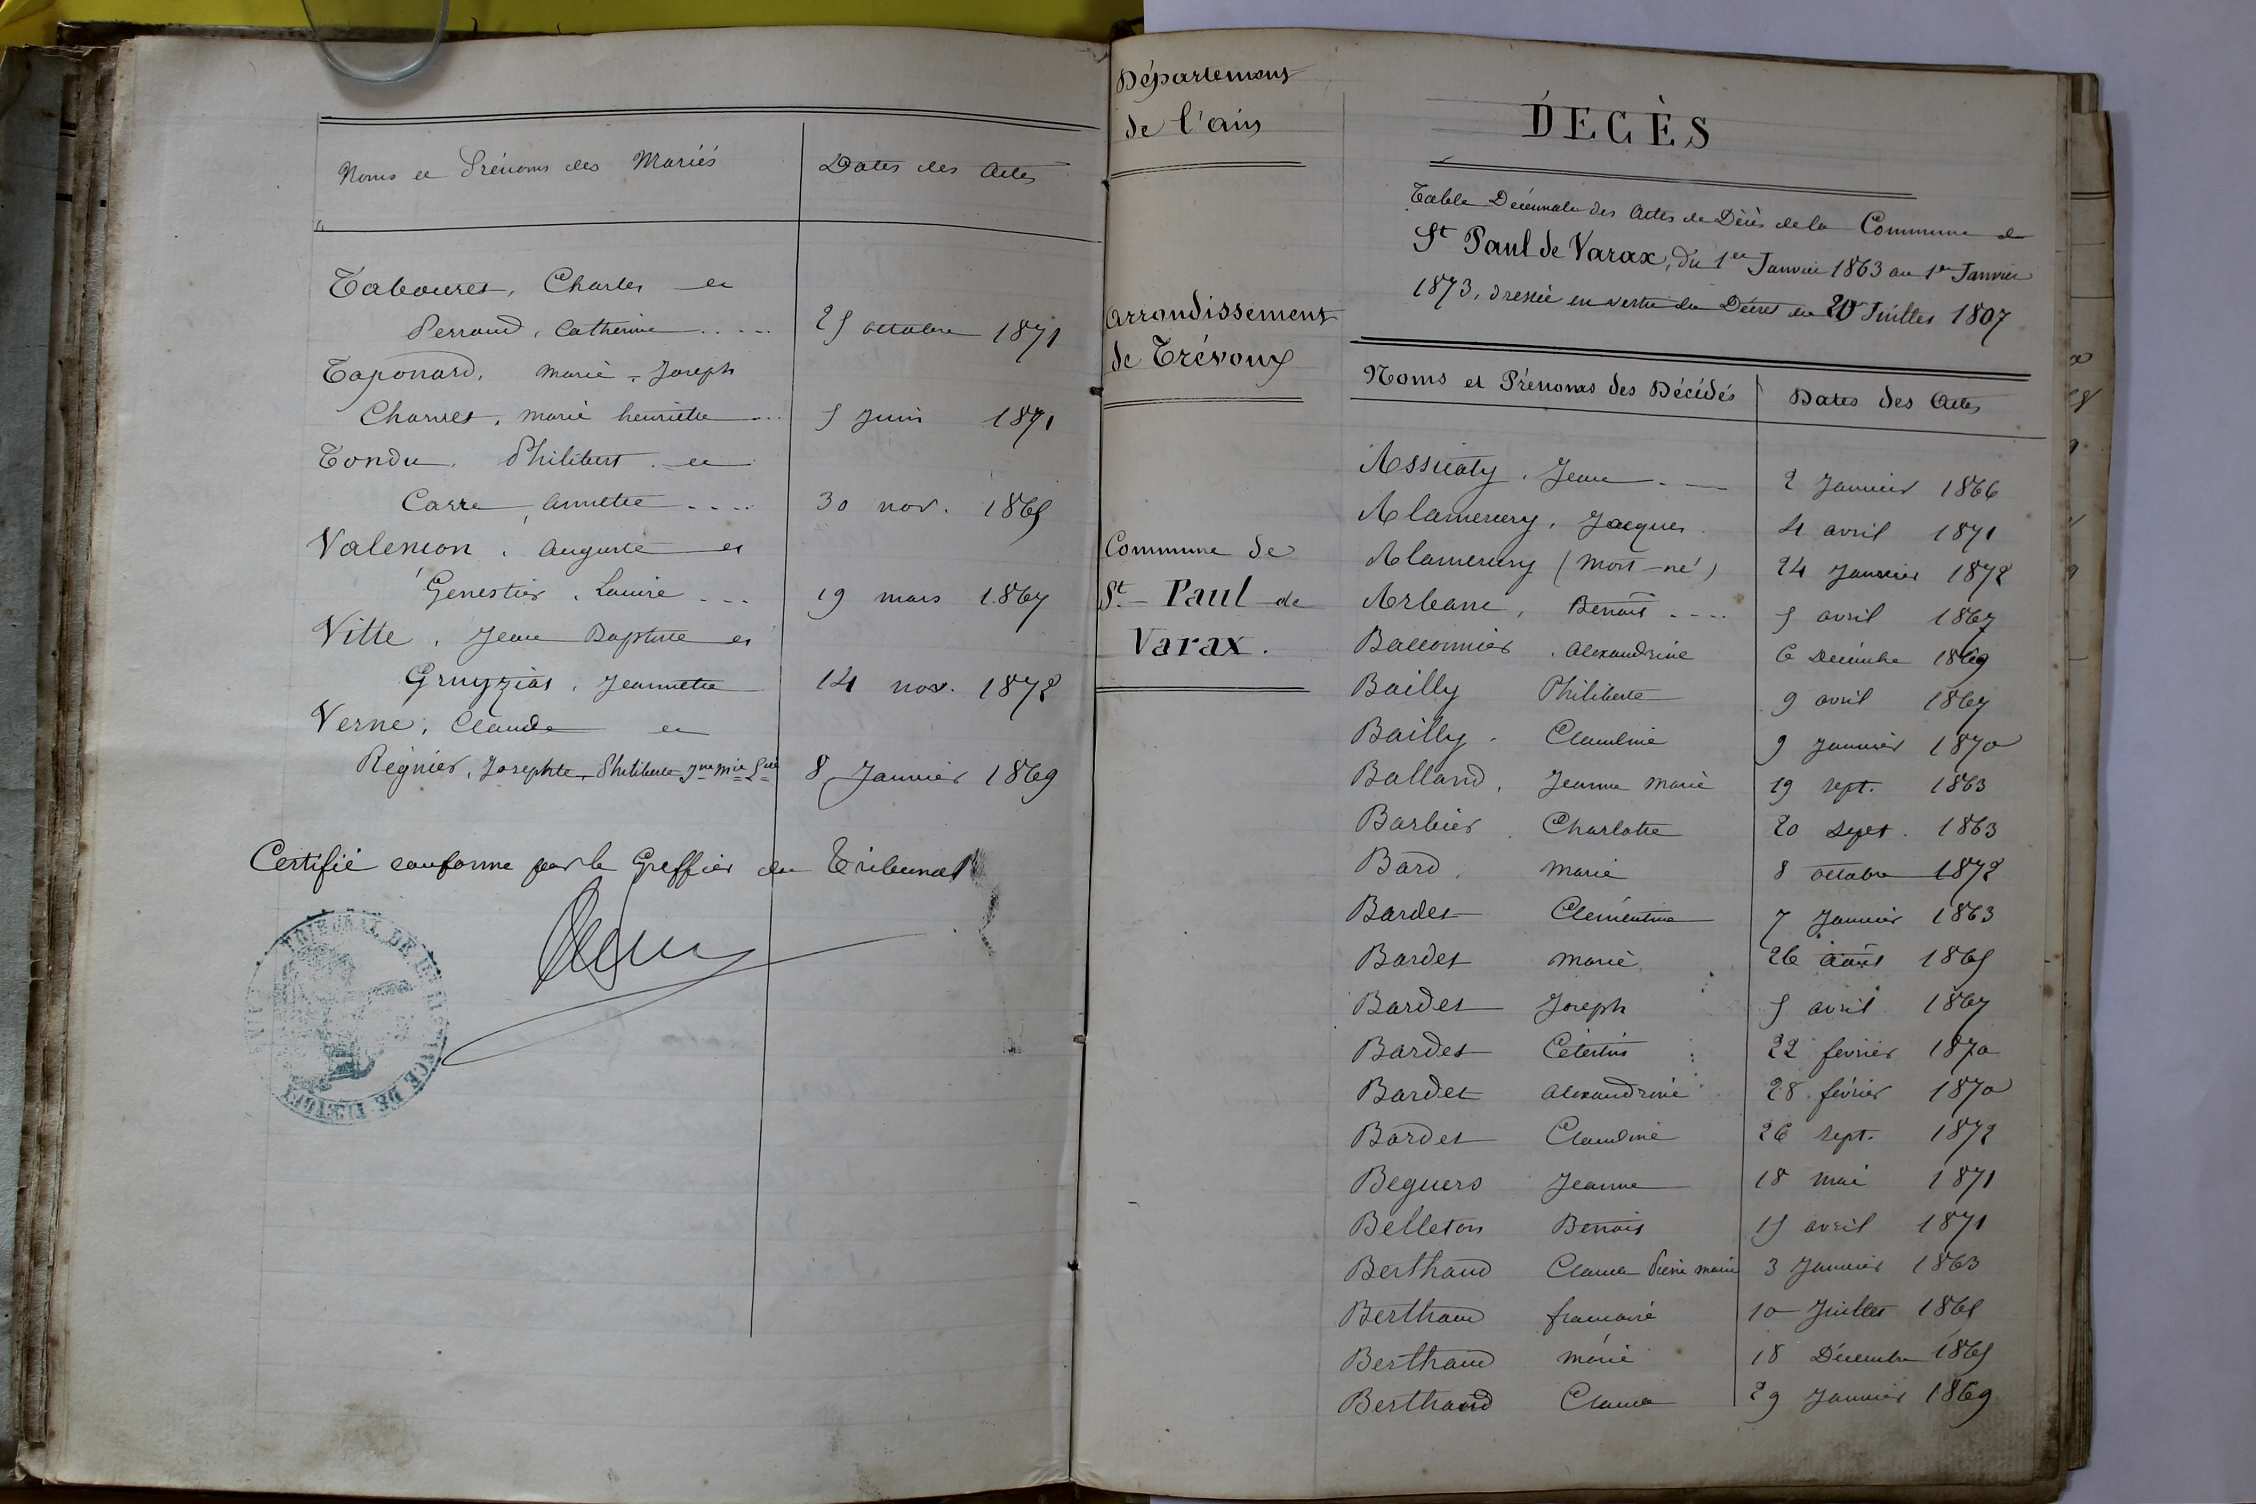 Noms et Prénoms des Mariés Dates des Actes
Tabouret, Charles et
Perraud, Catherine 25 octobre 1871
Taponard, Marie-Joseph
Charvet, Marie henriette 5 Juin 1871
Tondu, Philibert et
Carre, Annette 30 nov. 1865
Valencon, Auguste et
Genestier, Louise 19 mars 1867
Vitte, Jean Baptiste et
Gruyziat, Jeannette 14 nov. 1872
Verne, Claude et
Régnier, Josephte, Philiberte Jne Mie 8 Janvier 1869
Certifié conforme par le Greffier du Tribunal
TRIBUNAL DE 1ère INSTANCE DE TRÉVOUX
Département
de l'ain
Arrondissement
de Trévoux
Commune de
St Paul de
Varax.
DÉCÈS
Table Décennale des Actes de Décès de la Commune de
St Paul de Varax, du 1er Janvier 1863 au 1er Janvier
1873, dressée en vertu du Décret du 20 Juillet 1807
Noms et Prénoms des Décédés Dates des Actes
Assicaty, Jean 2 Janvier 1866
Alamercery, Jacques 4 avril 1871
Alamercery (Mort-né) 24 Janvier 1872
Arbeane, Benoit 5 avril 1867
Balconnier, Alexandrine 6 Décembre 1869
Bailly Philiberte 9 avril 1867
Bailly Claudine 9 Janvier 1870
Balland, Jeanne Marie 19 sept. 1863
Barbier Charlotte 20 sept. 1863
Bard, Marie 8 octobre 1872
Bardet Clémentine 7 Janvier 1863
Bardet Marie 26 août 1865
Bardet Joseph 5 avril 1867
Bardet Célestin 22 février 1870
Bardet Alexandrine 28 février 1870
Bardet Claudine 26 sept. 1872
Beguers Jeanne 18 mai 1871
Belleton Benoit 15 avril 1871
Berthaud Claude Pierre marie 3 Janvier 1863
Berthaud francoise 10 Juillet 1865
Berthaud Marie 18 Décembre 1865
Berthaud Claude 29 Janvier 1869